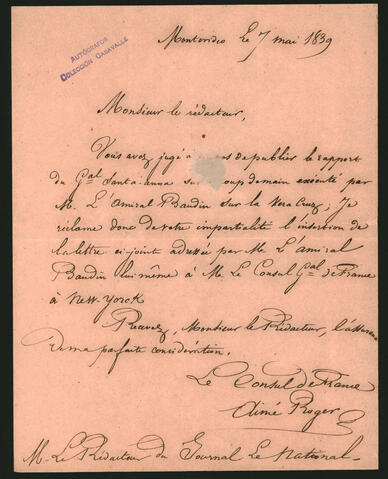 AUTÓGRAFOS
COLECCIÓN CASAVALLE
Montevideo Le 7 mai 1839
Monsieur le rédacteur,
Vous avez jugé à de publier le rapport
du Gal Santa-anna sur coup demain exécuté par
M. L'amiral Baudin sur la Vera Cruz; Je
réclame donc de votre impartialité l'insertion de
la lettre ci-joint adressée par M. L'amiral
Baudin lui même à M. Le Consul Gal de France
à New-Yorck
Recevez, Monsieur le Rédacteur, l'assurance
De ma parfaite considération.
Le Consul de France
Aimé Roger
M. Le Rédacteur du Journal Le National.